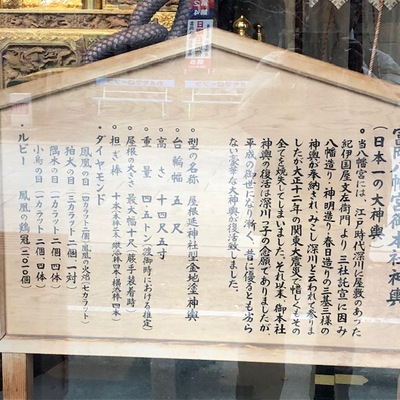 富岡八幡宮御本社神輿
(日本一の大神輿)
。当八幡宮には、江戸時代深川に屋敷のあった
紀伊国屋文左衛門より三社託宣に因み
八幡造り・神明造り・春日造りの三基三様の
神輿が奉納され、みこし深川と云われて参りま
したが大正十二年の関東大震災で惜しくもその
全てを焼失してしまいました。それ以来、御本社
神輿の復活は深川っ子の念願でありましたが、
平成の御世になり漸く、昔に優るとも劣ら
ない豪華な大神輿が復活致しました。
。型の名称 屋根延神社型金地塗神輿
。台輪幅 五尺
。高さ 十四尺五寸
。重量 四・五トン(渡御時における推定)
。屋根の大さ 最大幅十尺(蕨手装着時)
。担ぎ棒
・ダイヤモンド
鳳凰の目(四カラット二個)鳳凰の火焔(七カラット)
狛犬の目(三カラット二個 一対)
隅木の目(一カラット二個 四体)
小鳥の目(一カラット二個 四体)
・ルビー 鳳凰の鶏冠 二〇一〇個